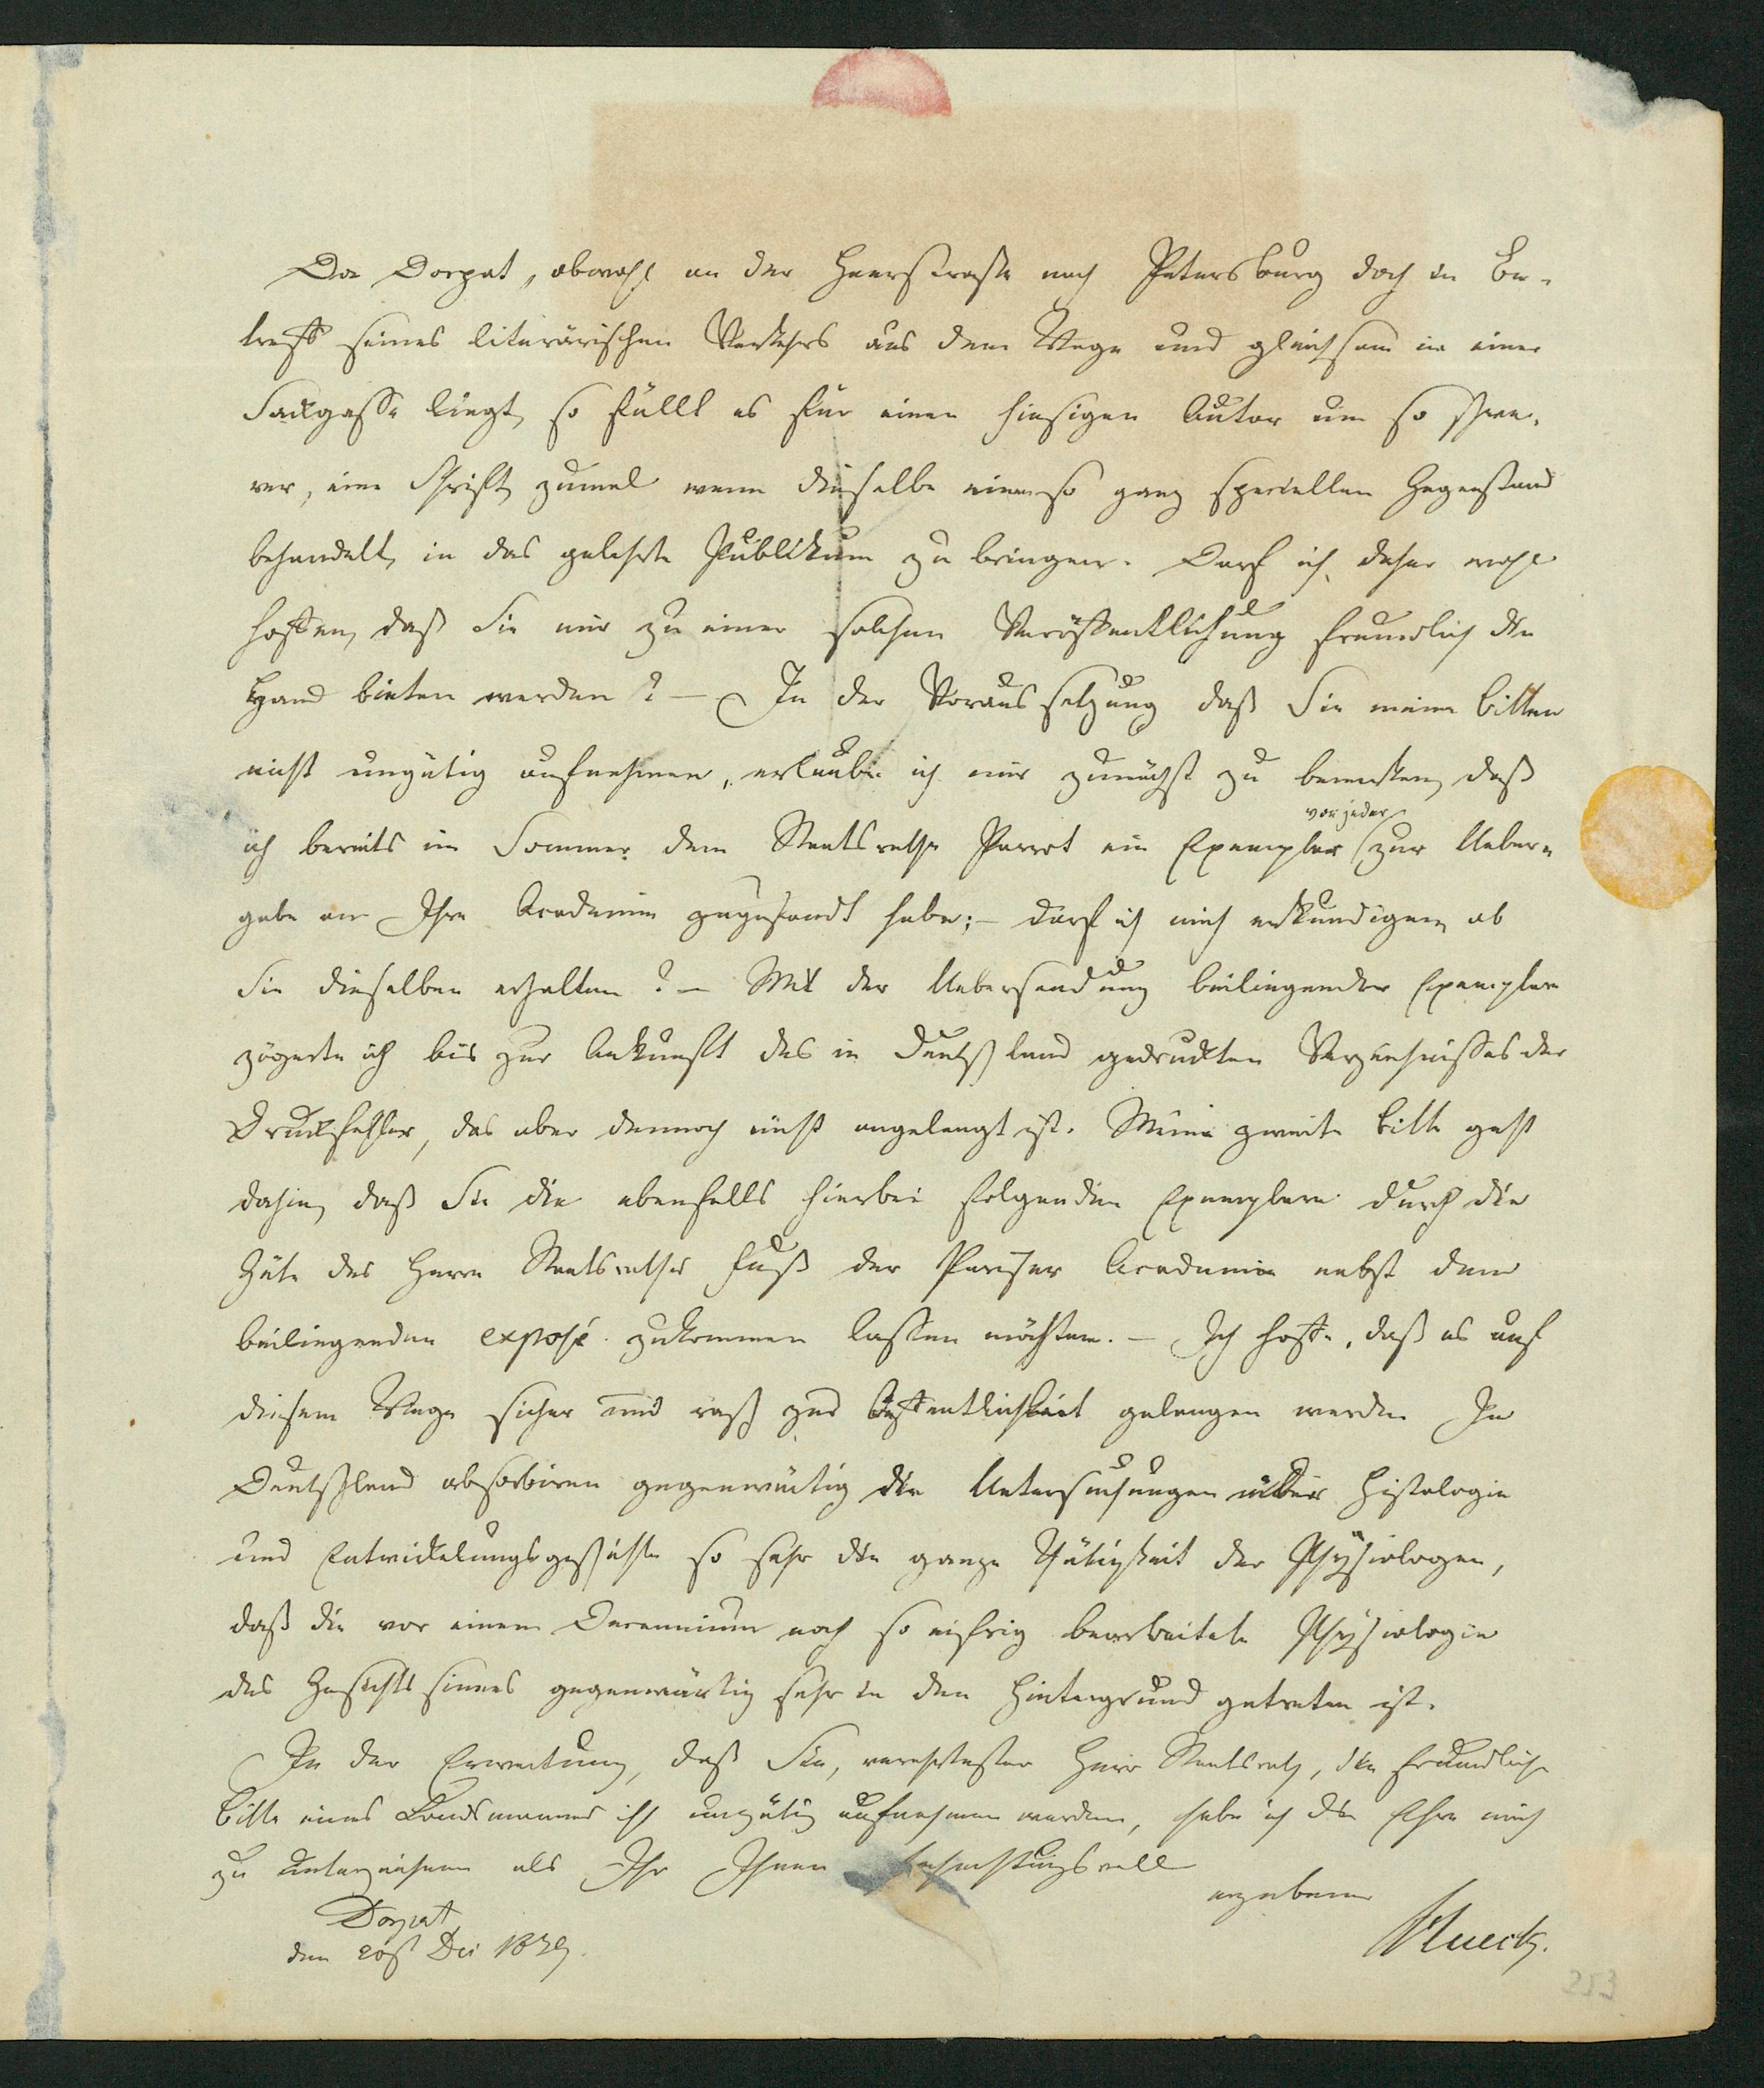 Da Dorpat, obwohl an der Heerstrasse nach Petersburg doch in Be-
treff seines literärischen Verkehrs aus dem Wege und gleichsam in einer
Sackgasse liegt, so fällt es für einen hiesigen Autor um so schwe-
rer, eine Schrift, zumal wenn dieselbe einen so ganz speciellen Gegenstand
behandelt, in das gelehrte Publikum zu bringen. Darf ich daher wohl
hoffen, daß Sie mir zu einer solchen Veröffentlichung freundlich die
Hand bieten werden? – In der Voraussetzung daß Sie meine Bitten
nicht ungütig aufnehmen, erlaube ich mir zunächst zu bemerken, daß
vor jeder
ich bereits im Sommer dem Staatsrathe Parrot ein Exemplar zur Ueber-
gabe an Ihre Academie zugesandt habe; – darf ich mich erkundigen, ob
Sie dieselben erhalten? – Mit der Uebersendung beiliegender Exemplare
zögerte ich bis zur Ankunft des in Deutschland gedruckten Verzeichnisses der
Druckfehler, das aber dennoch nicht angelangt ist. Meine zweite Bitte geht
dahin, daß Sie die ebenfalls hierbei folgenden Exemplare durch die
Güte des Herrn Staatsrathes Fuß der Pariser Academie nebst dem
beiliegenden exposé zukommen lassen möchten. – Ich hoffe, daß es auf
diesem Wege sicher und rasch zur Öffentlichkeit gelangen werde. In
Deutschland absorbiren gegenwärtig die Untersuchungen über Histologie
und Entwickelungsgeschichte so sehr die ganze Thätigkeit der Physiologen,
daß die vor einem Decennium noch so eifrig bearbeitete Physiologie
des Gesichtssinnes gegenwärtig sehr in den Hintergrund getreten ist.
In der Erwartung, daß Sie, verehrtester Herr Staatsrath, die freundliche
Bitte eines Landsmannes nicht ungütig aufnehmen werden, habe ich die Ehre mich
zu unterzeichnen als Ihr Ihnen hochachtungsvoll
ergebener
Dorpat
den 20st Dec 1839.
Hueck.
253